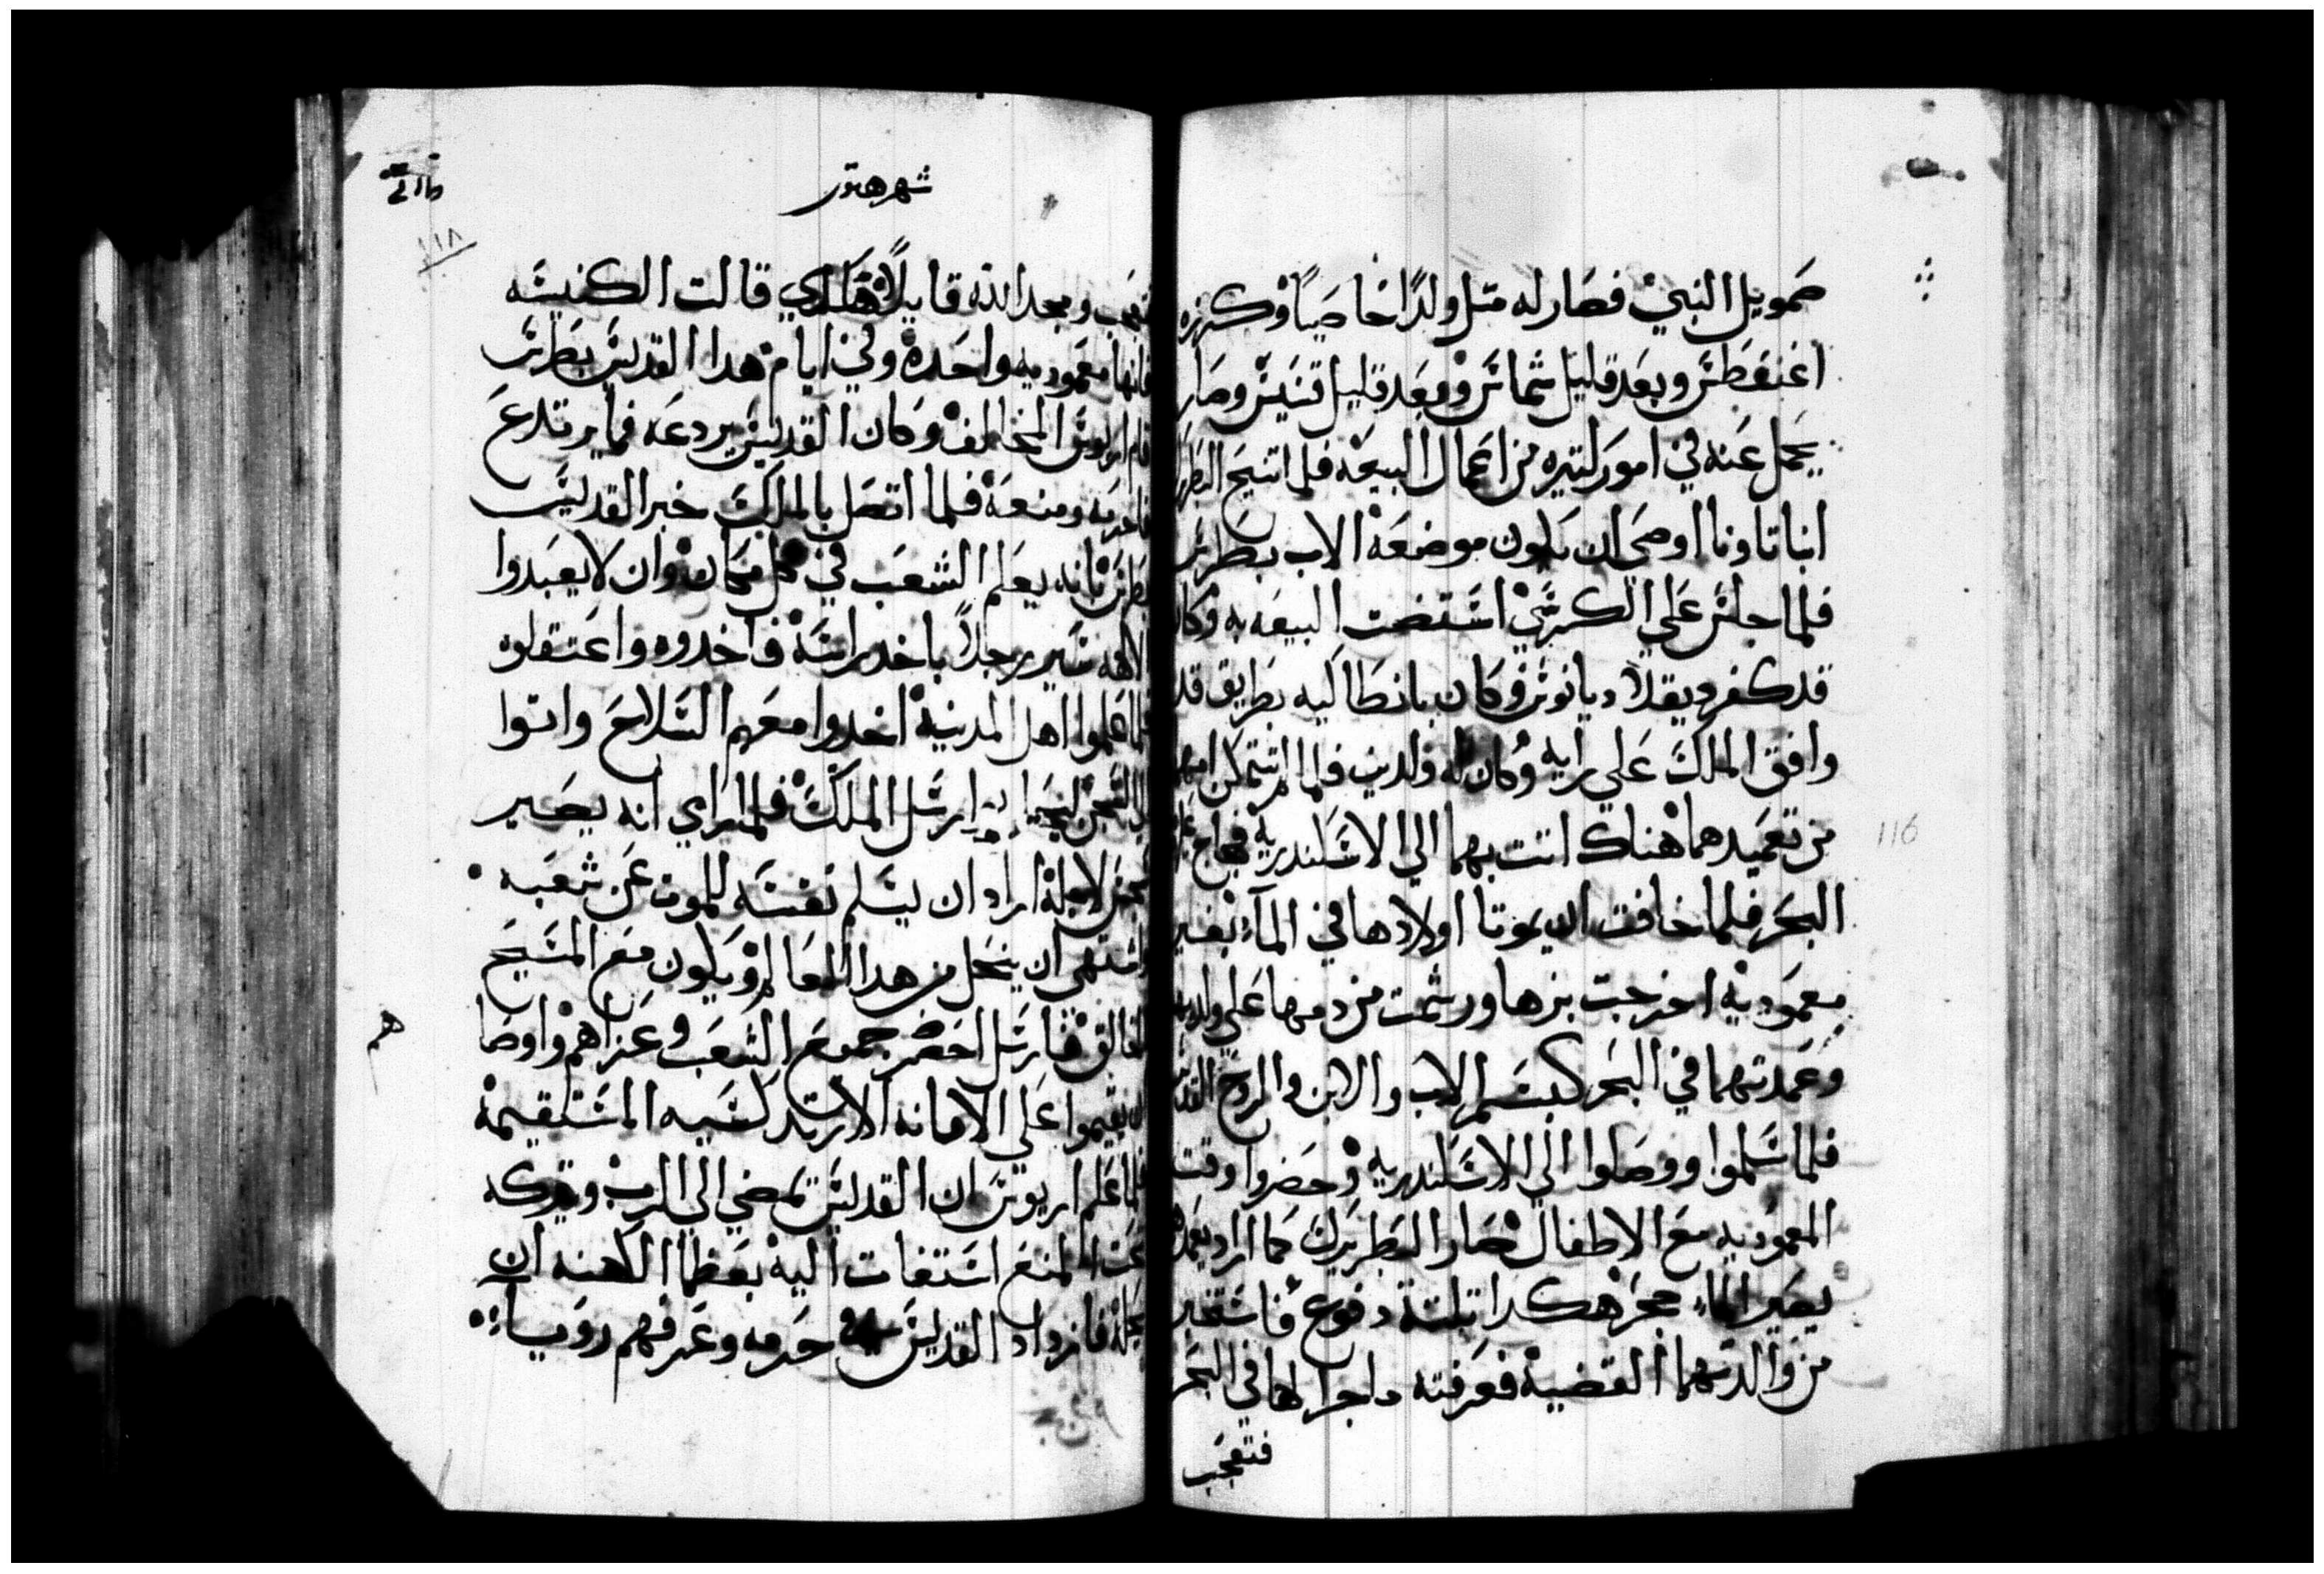 صمويل النبي فصار له متل ولدًا خاصيًا وكرزه
اغنقطس وبعد قليل شماس وبعد قليل قسيس وصار
يحمل عنه في امور كتيره من اعمال البيعه فلما اتنيح البطريرك
انبا تاونا اوصى ان يكون موضعه الاب بطرس
فلما جلس علي الكرسي استضت البيعه به وكان
قد كفر دقلاديانوس وكان بانطاكيه بطريق قد
وافق الملك علي رايه وكان له ولدين فلما لم تتمكن امهما
من تعميدهما هناك اتت بهما الي الاسكندريه فهاج عليها
البحر فلما خافت ان يموتا اولادها في الماء بغير
معموديه اخرجت بزها ورشمت من دمها علي ولديها
وعمدتهما في البحر كبسم الاب والابن والروح القدس
فلما سلموا ووصلوا الي الاسكندريه وحضروا وقت
المعموديه مع الاطفال صار البطريرك كما اراد يعمدهم
يصير الماء حجر هكدا تلتة دفوع فاستخبر
من والدتهما القضية فعرفته ماجرا لها في البحر
فتعجب
شهر هتور
١١٨
فتعجب ومجد الله قايلاً هكدي قالت الكنيسه
فانها معموديه واحده وفي ايام هدا القديس بطرس
قام اريوس المخالف وكان القديس يردعه فما يرتدع
فاحرمه ومنعه فلما اتصل بالملك خبر القديس
بطرس بانه يعلم الشعب في كل مكان وان لا يعبدوا
الالهه سير رجلاً باخد راسه فاخدوه واعتقلوه
فلما علموا اهل المدينة اخدوا معهم السلاح واتوا
الي السجن ارسل الملك فلما راي انه يصير
لاجله اراد ان يسلم نفسه للموت عن شعبه
واشتهى ان ينحل من هدا العالم ويكون مع المسيح
الخالق فارسل احضر جميع الشعب وعزاهم واوصاهم
ان يقيموا علي الامانه الارتدكسيه المستقيمة
فلما علم اريوس ان القديس يمضي الى الرب ويتركه
تحت المنع استغات اليه بعظما الكهنه ان
يحله فازداد القديس في حرمه وعرفهم رويا
116